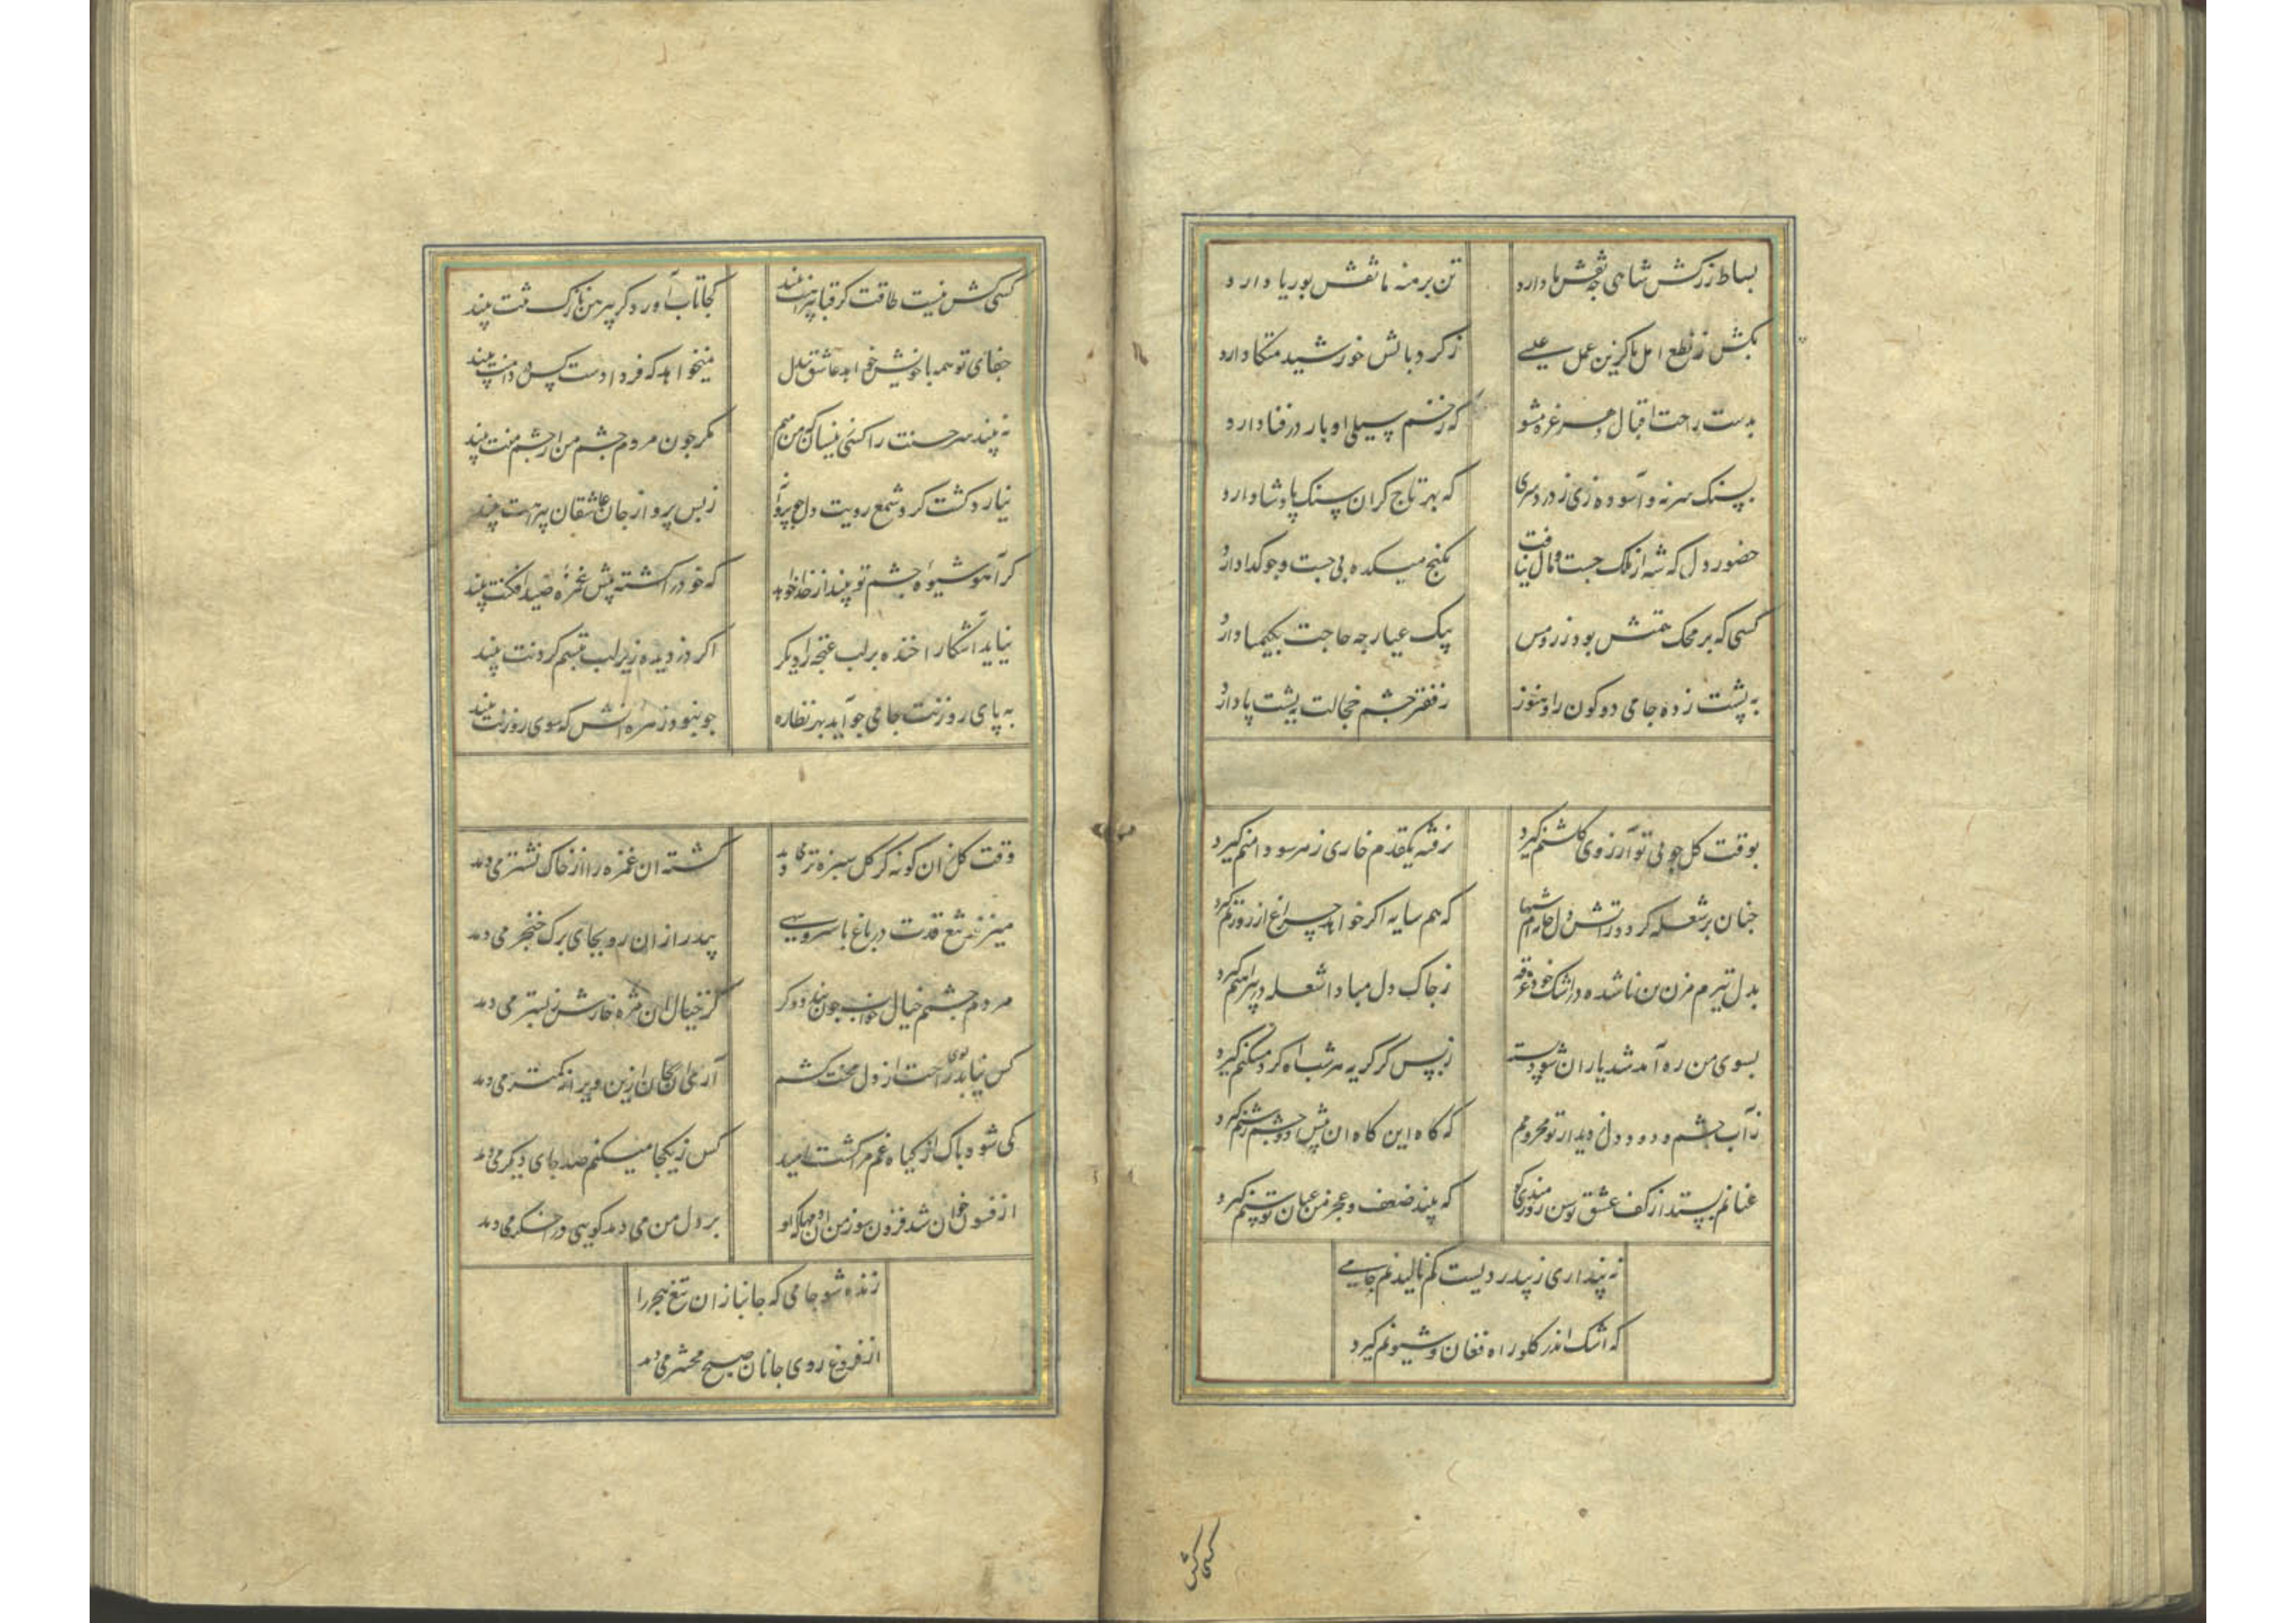 بساط زرکش شاهی چه نقش ها دارد
تن برهنه ما نقش بوریا دارد
بکش ز نطع امل پا کزین عمل عیسی
ز گرد بالش خورشید متکا دارد
بدست راحت اقبال دهر غره مشو
که زخم سیلی ادبار در قفا دارد
بسنگ سر نه و آسوده زی ز دردسری
که بهر تاج گران سنگ پادشا دارد
حضور دل که شه از ملک جست و مال نیافت
بکنج میکده بی جست و جو گدا دارد
کسی که بر محک همتش بود زر و مس
یک عیار چه حاجت بکیمیا دارد
به پشت پا زده جامی دو کون را و هنوز
ز فقر چشم خجالت به پشت پا دارد
بوقت گل چو بی تو آرزوی گلشنم گیرد
نرفته یکقدم خاری ز هر سو دامنم گیرد
چنان پر شعله گردد ز آتش دل خانه ام شبها
که همسایه اگر خواهد چراغ از روزنم گیرد
بدل تیرم مزن من ناشده در اشک خود غرقه
ز چاک دل مبادا شعله در پیراهنم گیرد
بسوی من ره آمد شد یاران شود بسته
ز بس کز گریه هر شب راه گرد مسکنم گیرد
ز آب چشم و دود دل ز دیدار تو محرومم
که گاه این گاه آن پیش دو چشم روشنم گیرد
عنانم بستد از کف عشق توسن روز مندی کو
که بیند ضعف و عجز من عنان توسنم گیرد
نه پنداری ز بیدردیست کم نالیدنم جامی
که اشک اندر گلو راه فغان و شیونم گیرد
کسی کش
کسی کش نیست طاقت کز قبا پیراهنت بیند
کجا تاب آورد کز پیرهن نازک تنت بیند
جفای تو همه با خویش خواهد عاشق بیدل
نمیخواهد که فردا دست کس در دامنت بیند
نه بیند سر حسنت را کسی زینسان که من بینم
مگر چون مردم چشم من از چشم منت بیند
نیارد گشت گرد شمع رویت دل چو پروانه
ز بس پرواز جان عاشقان پیرامنت بیند
گر آهو شیوه چشم تو بیند از خدا خواهد
که خود را کشته پیش غمزه صید افکنت بیند
نیاید آشکارا خنده بر لب غنچه را دیگر
اگر دزدیده زیر لب تبسم کردنت بیند
به پای روزنت جامی چو آید بهر نظاره
چو نبود زهره آنش که سوی روزنت بیند
وقت گل زان گونه کز گل سبزه تر می دمد
کشته آن غمزه را از خاک نشتر می دمد
میزند تیغ قدت در باغ با سرو سهی
بید را زان رو بجای برگ خنجر می دمد
مردم چشمم خیال خواب چون بندد دگر
کز خیال آن مژه خارش ز بستر می دمد
کس نیابد بوی راحت از دل محنت کشم
آری آن گل زین ویرانه کمتر می دمد
کی شود پاک از گیاه غم مرا کشت امید
کش ز یکجا میکنم صد جای دیگر می دمد
از فسون خوان شد فزون سوز من
بر دل من می دمد گویی در اخگر می دمد
زنده شو جامی که جانبازان تیغ هجر را
از فروغ روی جانان صبح محشر می دمد